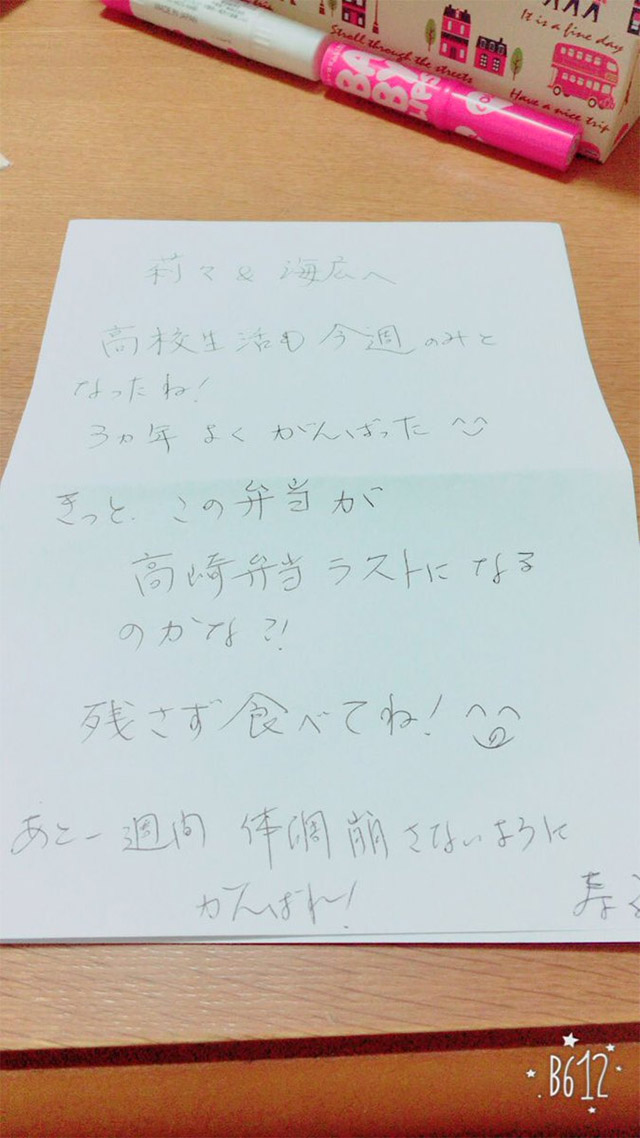 MADE IN JAPAN
BA
BY
LIPS
It is a fine day
Stroll through the streets
Have a nice trip
莉々 & 海広へ
高校生活も今週のみと
なったね!
3ヵ年 よく がんばった ^^
きっと、この弁当が
高崎弁当ラストになる
のかな?!
残さず食べてね! ^^
あと一週間 体調崩さないように
がんばれ!
寿
B612